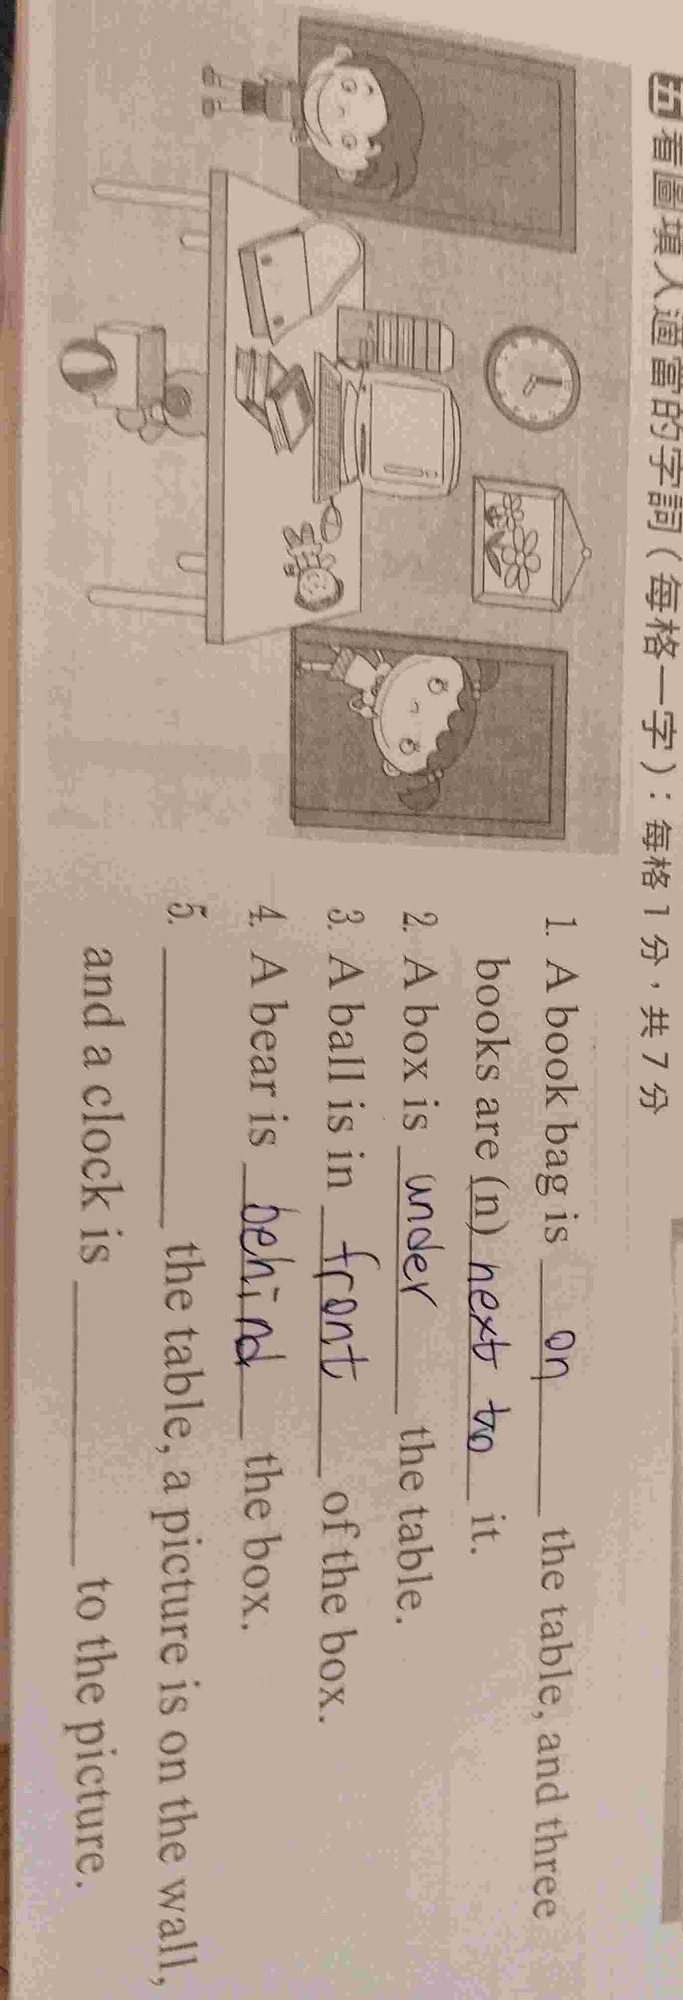 五 看圖填入適當的字詞(每格一字):每格1分,共7分
1. A book bag is on the table, and three
books are (n) next to it.
2. A box is under the table.
3. A ball is in front of the box.
4. A bear is behind the box.
5. ________ the table, a picture is on the wall,
and a clock is ________ to the picture.